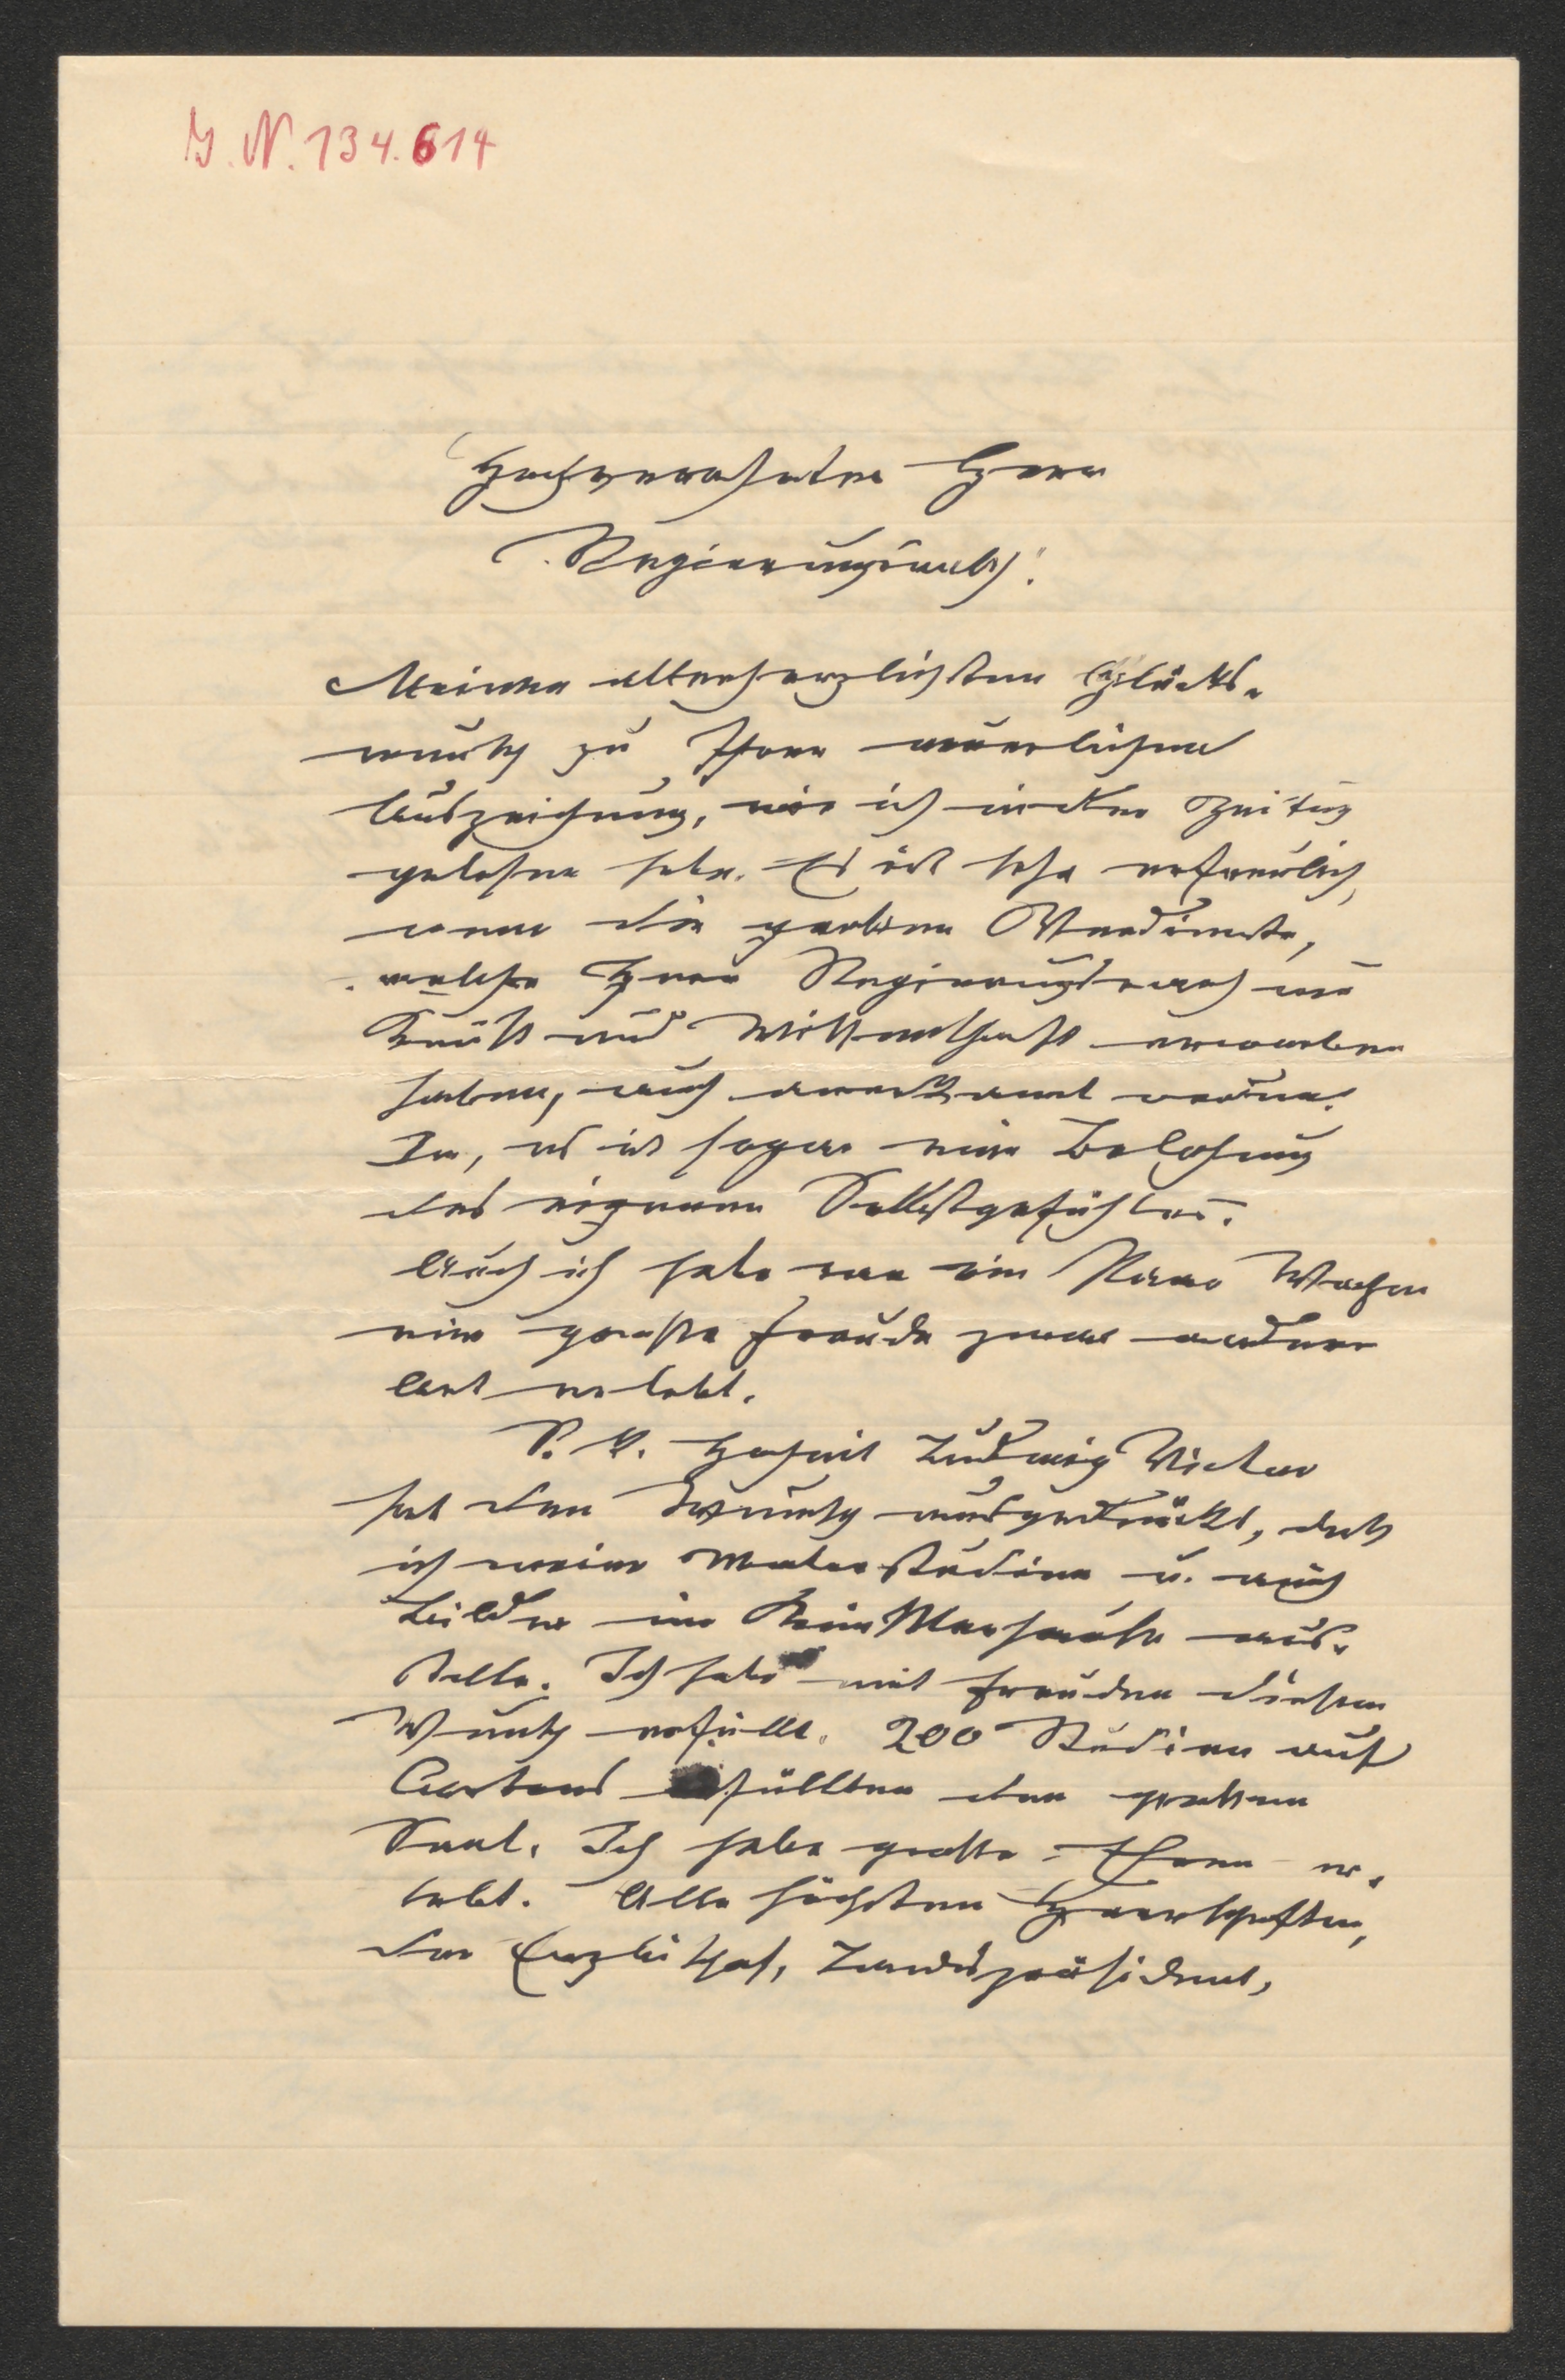 J. N. 134.614
Hochverehrter Herr
Regierungsrath!
Meinen allerherzlichsten Glücks-
wunsch zu Ihrer neuerlichen
Auszeichnung, wie ich in der Zeitung
gelesen habe. Es ist sehr erfreulich,
wenn die großen Verdienste,
welche Herr Regierungsrath um
Kunst und Wissenschaft erworben
haben, auch anerkannt werden.
Ja, es ist sogar eine Belohnung
des eigenen Selbstgefühles.
Auch ich habe vor ein Paar Wochen
eine große Freude zwar anderer
Art erlebt.
S. K. Hoheit Ludwig Victor
hat den Wunsch ausgedrückt, daß
ich meine Malerstudien u. auch
Bilder im Künstlerhause aus-
stelle. Ich habe mit Freuden diesen
Wunsch erfüllt. 200 Studien auf
Cartons füllten den großen
Saal. Ich habe große Ehren er-
lebt. Alle höchsten Herrschaften,
der Erzbischof, Landespräsident,